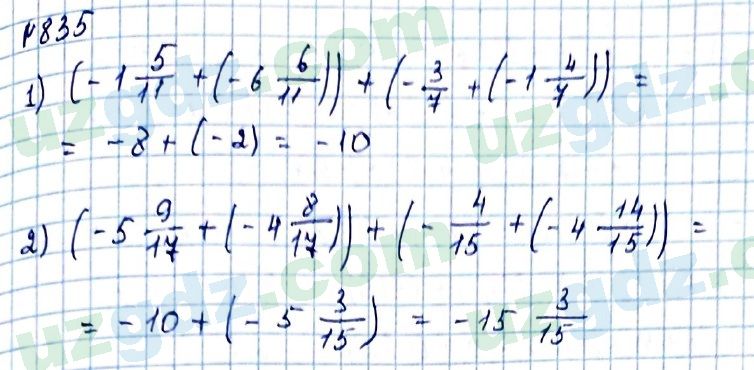 №835
1) (-1 5/11 + (-6 6/11)) + (-3/7 + (-1 4/7)) =
= -8 + (-2) = -10
2) (-5 9/17 + (-4 8/17)) + (-4/15 + (-4 14/15)) =
= -10 + (-5 3/15) = -15 3/15
uzgdz.com
uzgdz.com
uzgdz.com
uzgdz.com